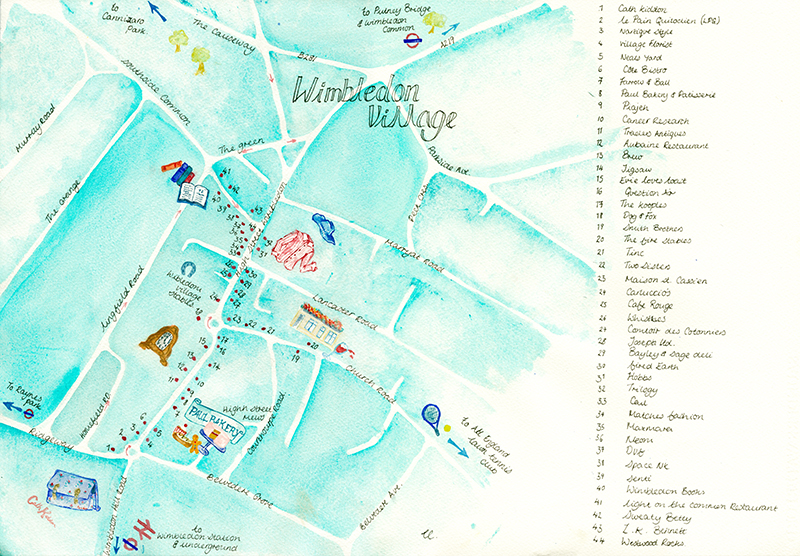 to
Cannizaro
Park.
The Causeway
to Putney Bridge
& Wimbledon
Common
A219
B281
Southside Common
Wimbledon
Village
Murray Road
The Grange
The green
Parkside Ave.
Peek Cres.
High Street Wimbledon
Marryat Road
Lingfield Road
Wimbledon
Village
Stables
Lancaster Road
Church Road
Homefield RD
High Street
Mews
PAUL BAKERY
Courthope Road
to Raynes
park
Ridgeway
Belvedere Grove
Belvedere Ave.
to All England
lawn tennis
club
Wimbledon Hill Road
to
Wimbledon Station
& underground
1 Cath Kidston
2 le Pain Quotidien (LPQ)
3 Narrative Style
4 Village Florist
5 Neals Yard
6 Côte Bistro
7 Farrow & Ball
8 Paul Bakery & Patisserie
9 Prajeh
10 Cancer Research
11 Traders Antiques
12 Aubaine Restaurant
13 Brew
14 Jigsaw
15 Evie loves toast
16 Question Air
17 The Kooples
18 Dog & Fox
19 Smith Brothers
20 The fire Stables
21 Tinc
22 Two Sisters
23 Maison st Cassien
24 Carluccio's
25 Cafe Rouge
26 Whistles
27 Comtoir des Cotonniers
28 Joseph ltd.
29 Bayley & Sage deli
30 fired Earth
31 Hobbs
32 Trilogy
33 Cau
34 Matches fashion
35 Maxmara
36 Neom
37 DVF
38 Space NK
39 Senti
40 Wimbledon Books
41 light on the common Restaurant
42 Sweaty Betty
43 L.K. Bennett
44 Westwood Rocks